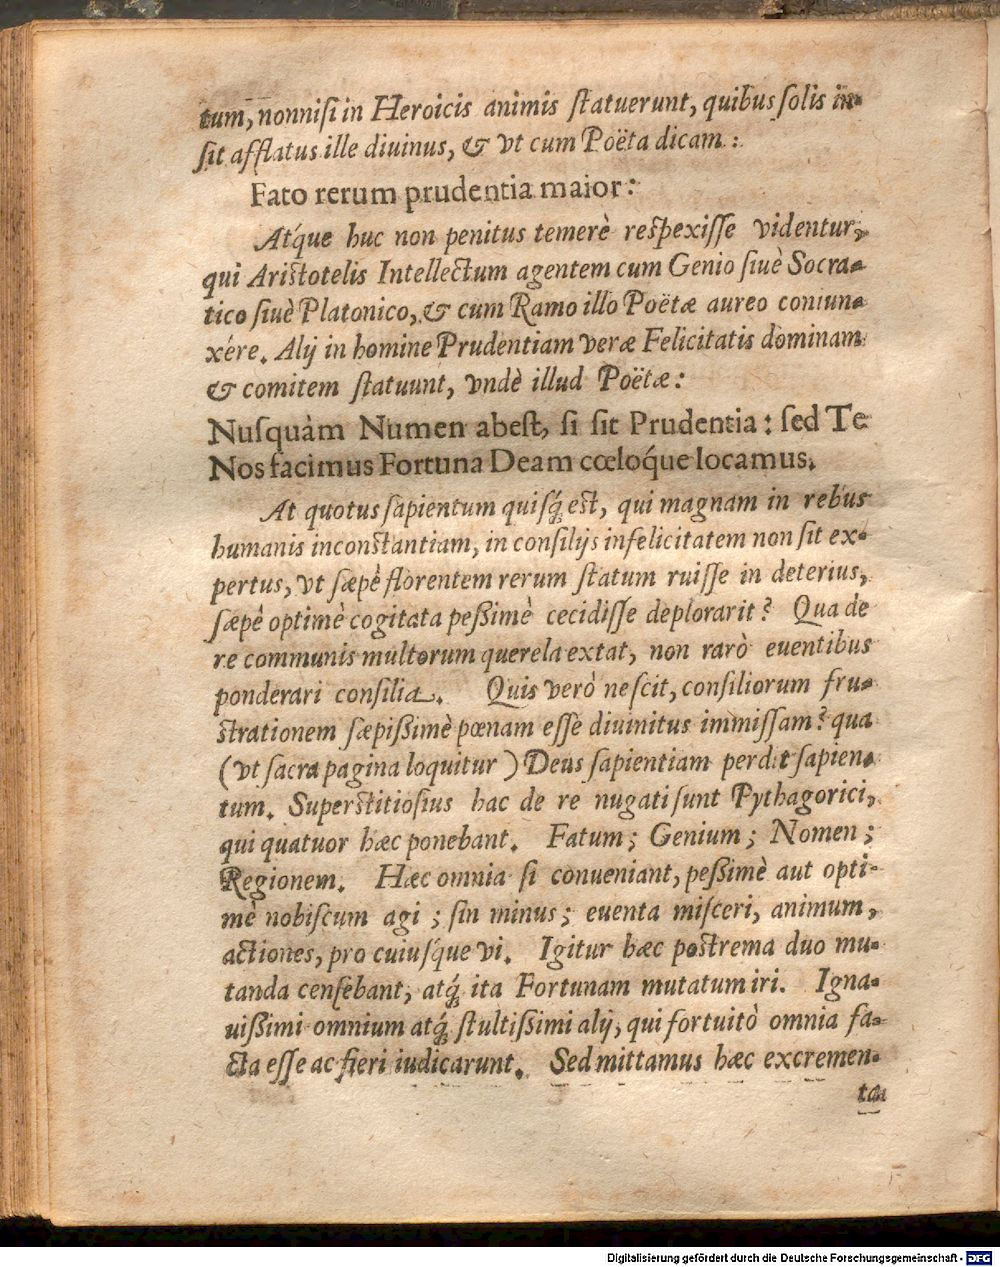 tum, nonniſi in Heroicis animis ſtatuerunt, quibus ſolis in-
ſit afflatus ille diuinus, & vt cum Poëta dicam:
Fato rerum prudentia maior:
Atq́ue huc non penitus temerè reſpexiſſe videntur,
qui Ariſtotelis Intellectum agentem cum Genio ſiuè Socra-
tico ſiuè Platonico, & cum Ramo illo Poëtæ aureo coniun-
xére. Alij in homine Prudentiam veræ Felicitatis dominam
& comitem ſtatuunt, vndè illud Poëtæ:
Nuſquàm Numen abeſt, ſi ſit Prudentia: ſed Te
Nos facimus Fortuna Deam cœloq́ue locamus.
At quotus ſapientum quiſq́; eſt, qui magnam in rebus
humanis inconſtantiam, in conſilijs infelicitatem non ſit ex-
pertus, vt ſæpè florentem rerum ſtatum ruiſſe in deterius,
ſæpè optimè cogitata peßimè cecidiſſe deplorarit? Qua de
re communis multorum querela extat, non rarò euentibus
ponderari conſilia. Quis verò neſcit, conſiliorum fru-
ſtrationem ſæpißimè pœnam eſſe diuinitus immiſſam? qua
(vt ſacra pagina loquitur) Deus ſapientiam perdit ſapien-
tum. Superſtitioſius hac de re nugati ſunt Pythagorici,
qui quatuor hæc ponebant. Fatum; Genium; Nomen;
Regionem. Hæc omnia ſi conueniant, peßimè aut opti-
mè nobiſcum agi; ſin minus; euenta miſceri, animum,
actiones, pro cuiuſq́ue vi. Igitur hæc poſtrema duo mu-
tanda cenſebant, atq́; ita Fortunam mutatum iri. Igna-
uißimi omnium atq́; ſtultißimi alij, qui fortuitò omnia fa-
cta eſſe ac fieri iudicarunt. Sed mittamus hæc excremen-
ta
Digitalisierung gefördert durch die Deutsche Forschungsgemeinschaft - DFG